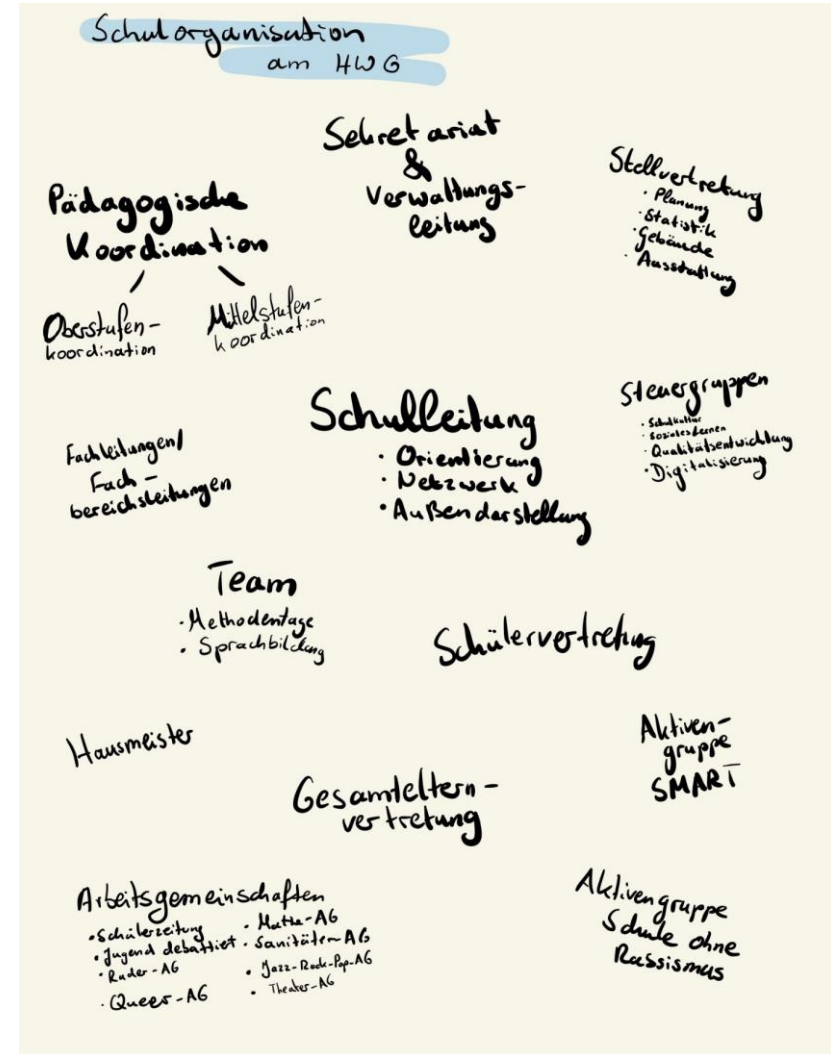 Schulorganisation
am HWG
Sekretariat
&
Verwaltungs-
leitung
Pädagogische
Koordination
Oberstufen-
koordination
Mittelstufen-
koordination
Stellvertretung
· Planung
· Statistik
· Gebäude
· Ausstattung
Schulleitung
· Orientierung
· Netzwerk
· Außendarstellung
Steuergruppen
· Schulkultur
· Soziales Lernen
· Qualitätsentwicklung
· Digitalisierung
Fachleitungen/
Fach-
bereichsleitungen
Team
· Methodentage
· Sprachbildung
Schülervertretung
Hausmeister
Aktiven-
gruppe
SMART
Gesamteltern-
vertretung
Arbeitsgemeinschaften
· Schülerzeitung
· Jugend debattiert
· Ruder-AG
· Queer-AG
· Mathe-AG
· Sanitäter-AG
· Jazz-Rock-Pop-AG
· Theater-AG
Aktivengruppe
Schule ohne
Rassismus